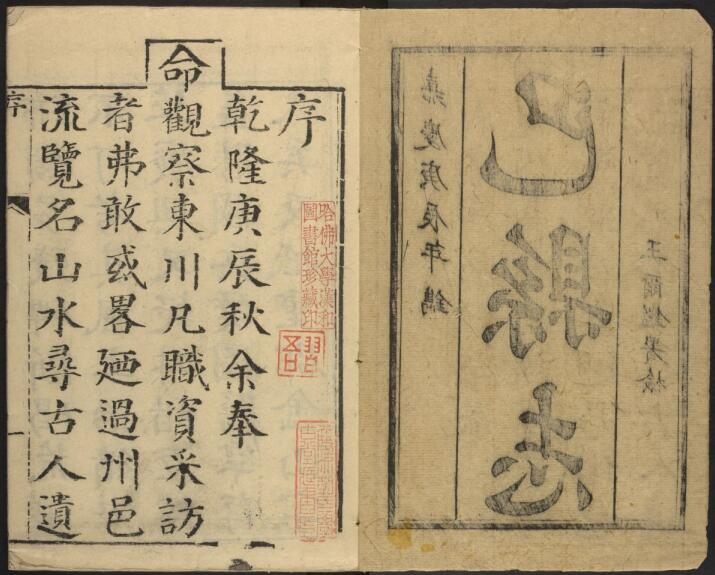 嘉慶庚辰年鐫
巴縣志
王爾鑑署檢
序
乾隆庚辰秋余奉
命觀察東川凡職資采訪
者弗敢或畧廼過州邑
流覽名山水尋古人遺
序
一
哈佛大學漢和
圖書館珍藏印